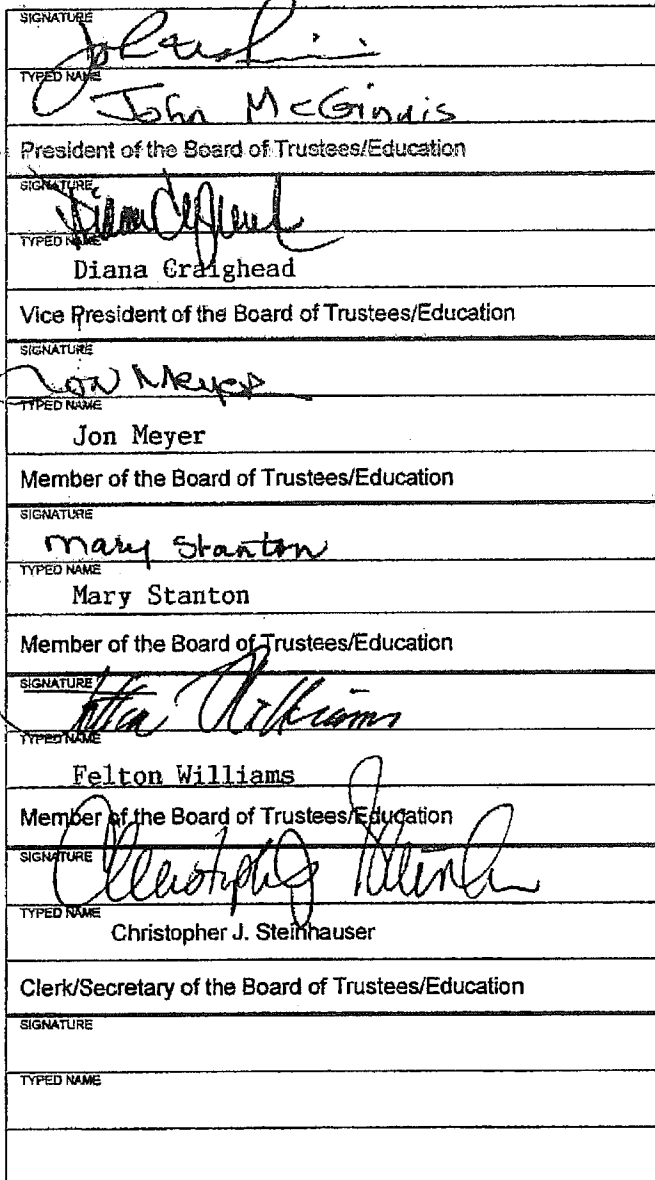 SIGNATURE
TYPED NAME
John McGinnis
President of the Board of Trustees/Education
SIGNATURE
TYPED NAME
Diana Craighead
Vice President of the Board of Trustees/Education
SIGNATURE
Jon Meyer
TYPED NAME
Jon Meyer
Member of the Board of Trustees/Education
SIGNATURE
Mary Stanton
TYPED NAME
Mary Stanton
Member of the Board of Trustees/Education
SIGNATURE
Felton Williams
TYPED NAME
Felton Williams
Member of the Board of Trustees/Education
SIGNATURE
TYPED NAME
Christopher J. Steinhauser
Clerk/Secretary of the Board of Trustees/Education
SIGNATURE
TYPED NAME